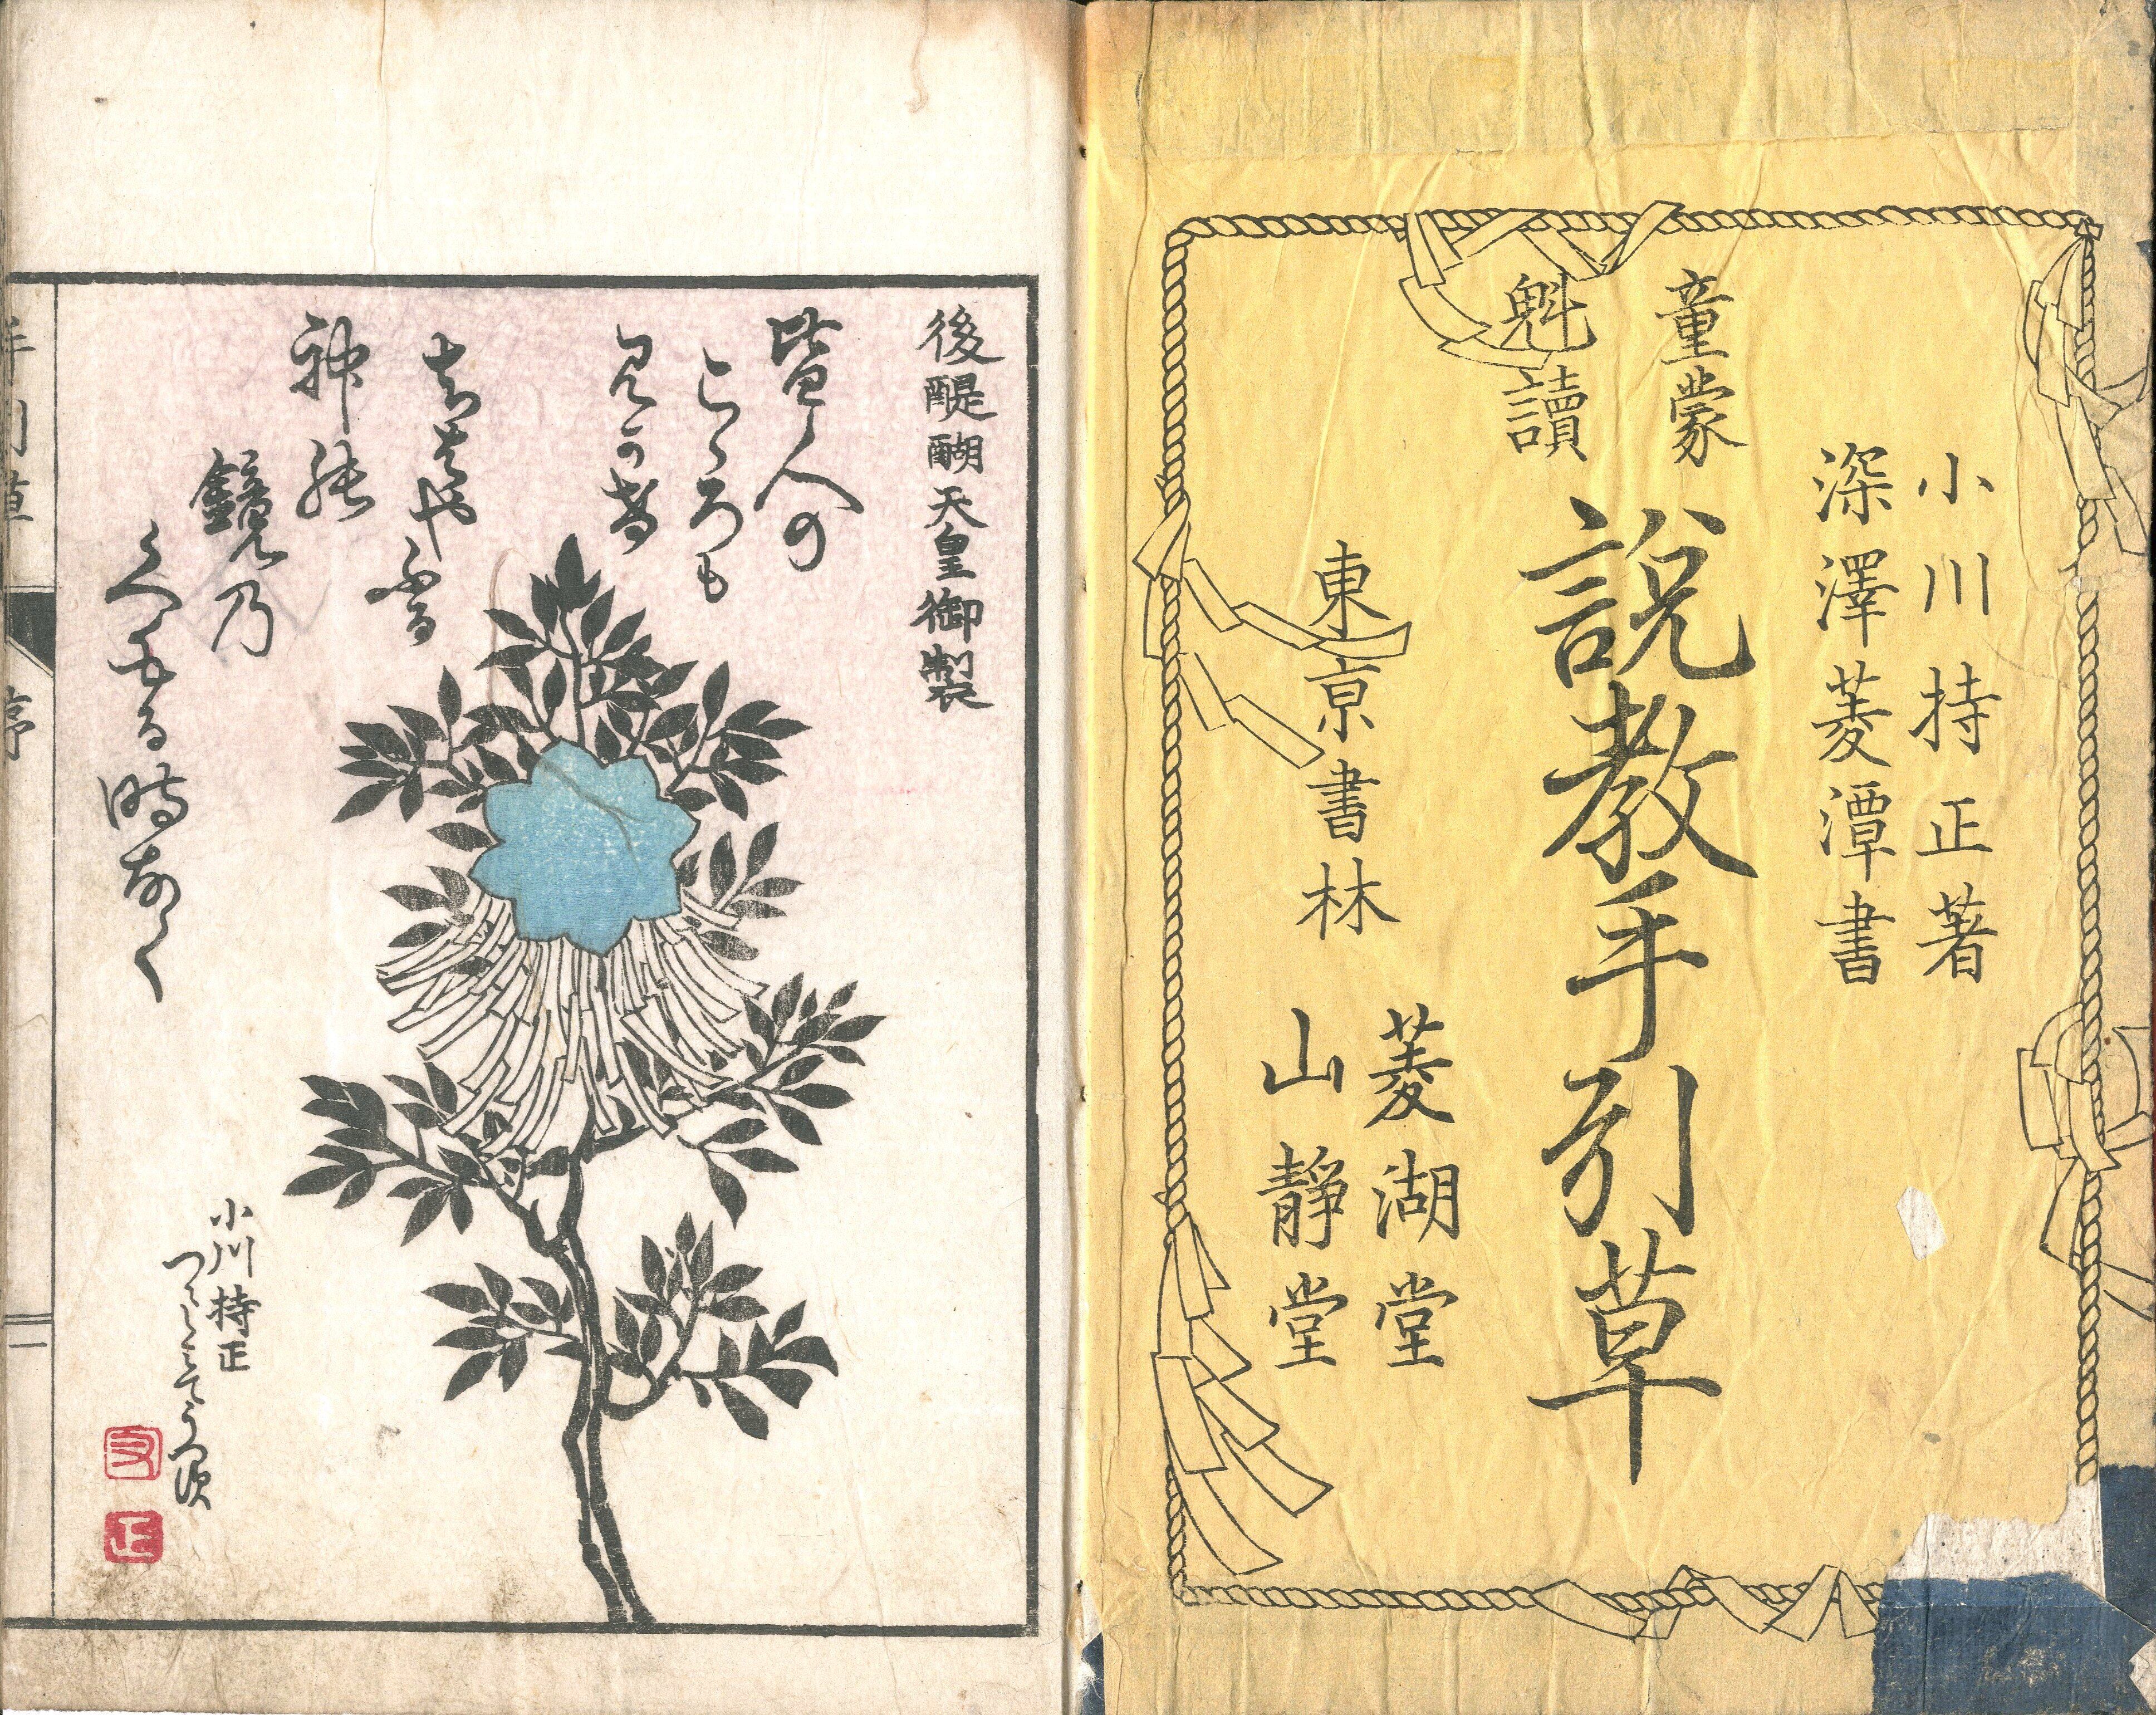 小川持正著
深澤菱潭書
童蒙
魁讀
說教手引草
東京書林
菱湖堂
山靜堂
後醍醐天皇御製
皆人の
こゝろも
みかけ
ちはやふる
神能
鏡乃
くもる時なく
小川持正
つゝしみてうつす
正
手引草
序